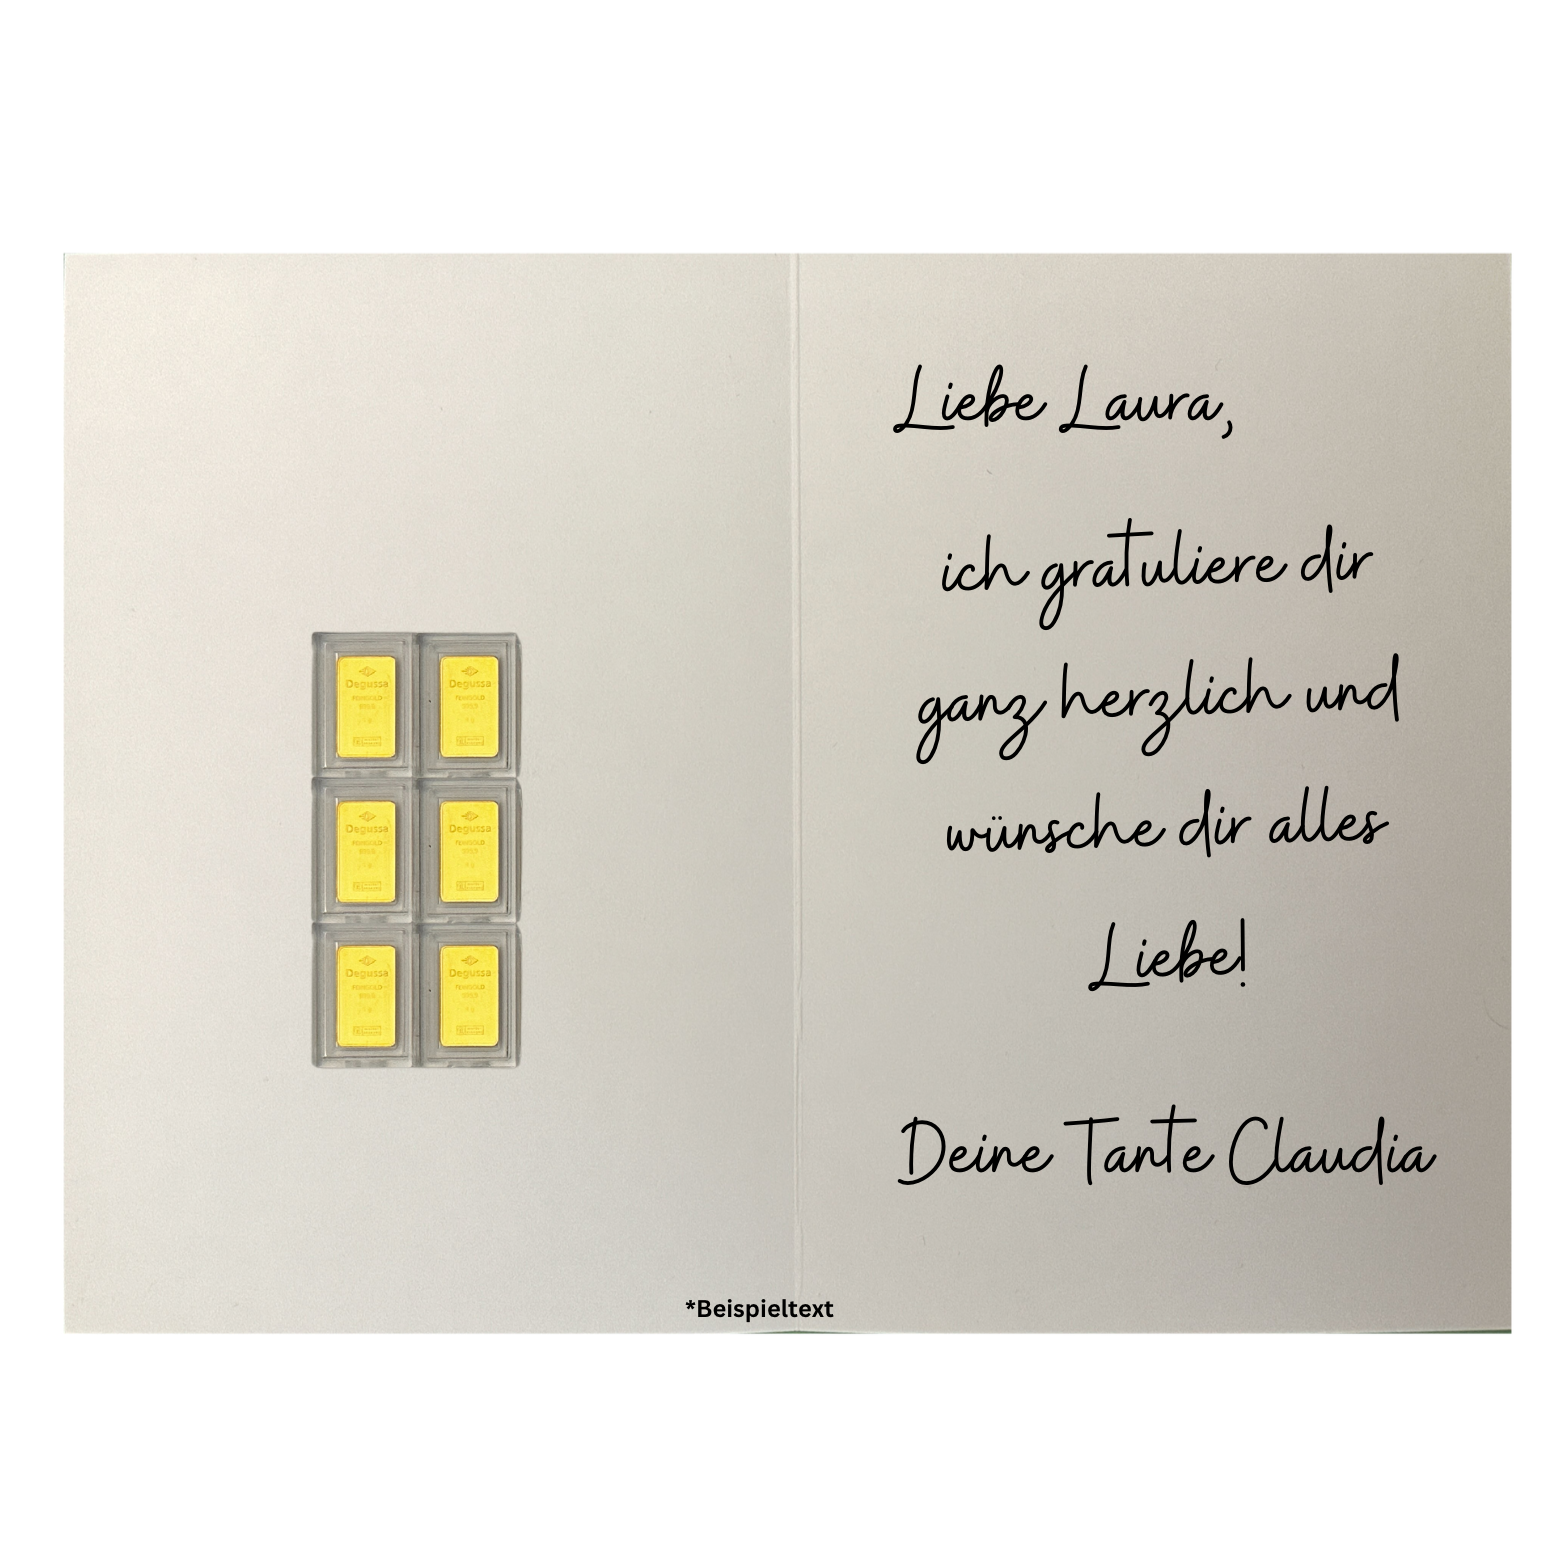 Degussa
FEINGOLD
999,9
1 g
Degussa
FEINGOLD
999,9
1 g
Degussa
FEINGOLD
999,9
Degussa
FEINGOLD
999,9
1 g
Degussa
FEINGOLD
999,9
Degussa
FEINGOLD
999,9
1 g
Liebe Laura,
ich gratuliere dir
ganz herzlich und
wünsche dir alles
Liebe!
Deine Tante Claudia
*Beispieltext